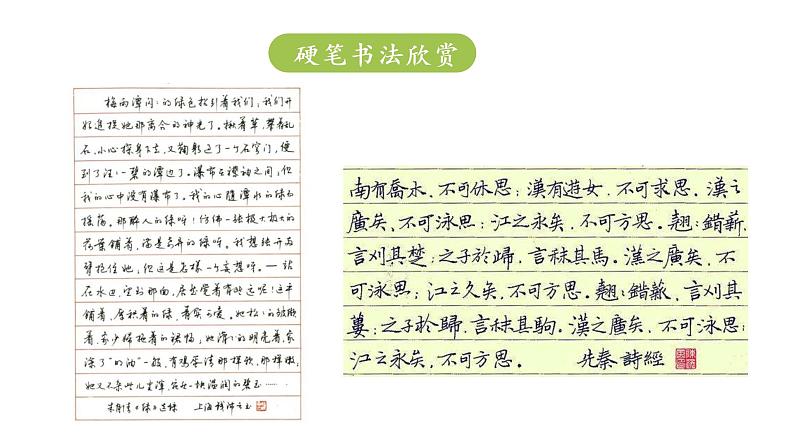 硬笔书法欣赏
梅雨潭闪:的绿色招引着我们；我们开
始追捉她那离合的神光了。揪着草，攀着乱
石，小心探身下去，又鞠躬过了一个石穹门，便
到了汪:一碧的潭边了。瀑布在襟袖之间；但
我的心中没有瀑布了。我的心隨潭水的绿而
摇荡。那醉人的绿呀！仿佛一张极大极大的
荷葉铺着，满是奇异的绿呀。我想张开两
臂抱住她；但这是怎样一个妄想呀。—站
在水边，望到那面，居然觉着有些远呢！这平
铺着，厚积着的绿，着实可爱。她松:的皱缬
着，像少妇拖着的裙幅；她滑:的明亮着，像
涂了“明油”一般，有鸡蛋清那样软，那样嫩；
她又不杂些儿尘滓，宛然一块温润的碧玉……
朱自清《绿》选 上海 钱沛云
南有喬木，不可休思；漢有遊女，不可求思。漢之
廣矣，不可泳思；江之永矣，不可方思。翹:錯薪，
言刈其楚；之子於歸，言秣其馬。漢之廣矣，不
可泳思；江之久矣，不可方思。翹:錯薪，言刈其
蔞；之子於歸，言秣其駒。漢之廣矣，不可泳思；
江之永矣，不可方思。 先秦 詩經